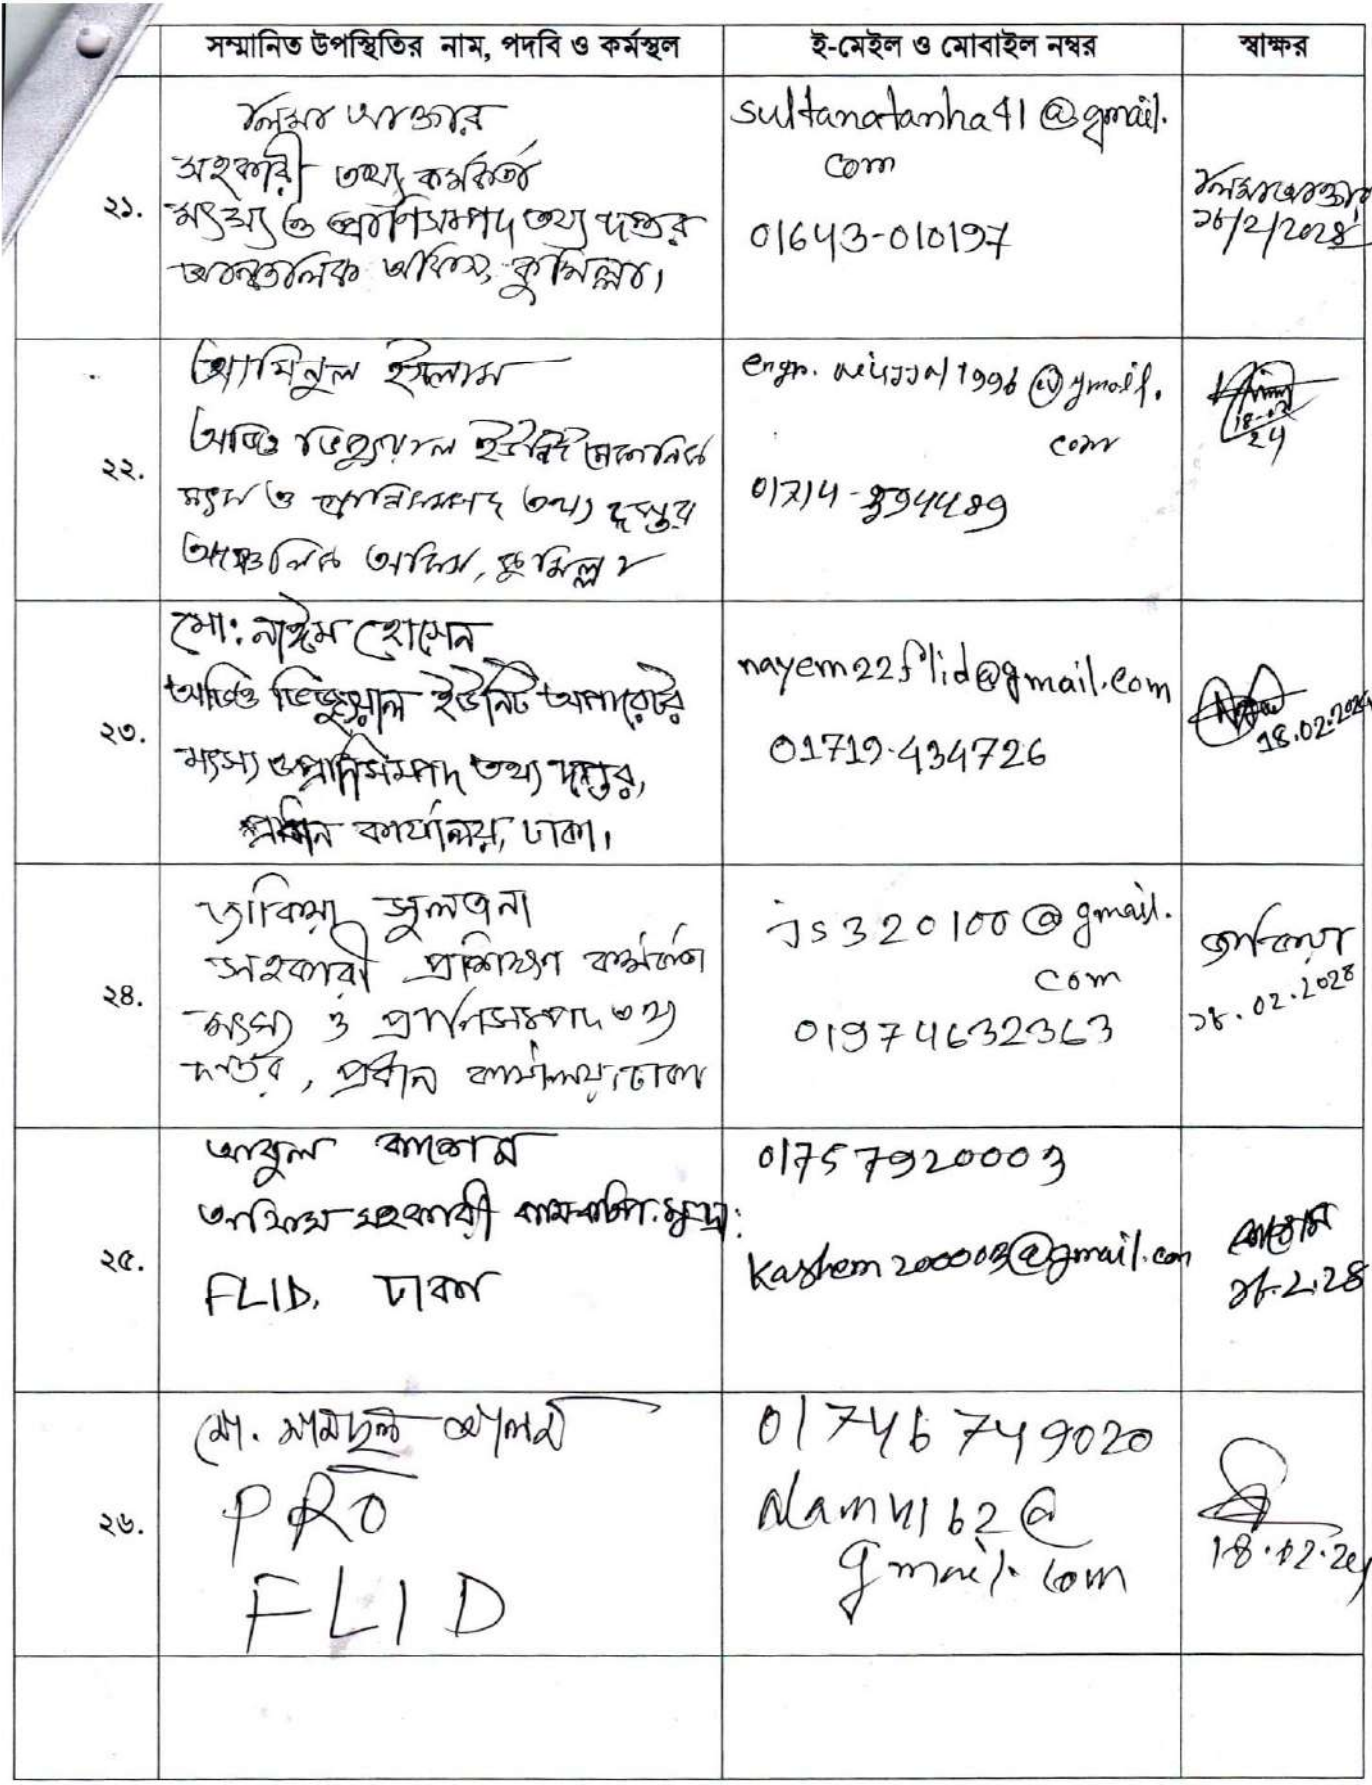 সম্মানিত উপস্থিতির নাম, পদবি ও কর্মস্থল
ই-মেইল ও মোবাইল নম্বর
স্বাক্ষর
২১.
লিমা আক্তার
সহকারী তথ্য কর্মকর্তা
মৎস্য ও প্রাণিসম্পদ তথ্য দপ্তর
আঞ্চলিক অফিস, কুমিল্লা।
sultanatanha41@gmail.
com
01643-010197
লিমা আক্তার
১৮/2/202৪
২২.
আমিনুল ইসলাম
অডিও ভিজ্যুয়াল ইউনিট মেকানিক
মৎস্য ও প্রাণিসম্পদ তথ্য দপ্তর
আঞ্চলিক অফিস, কুমিল্লা
engr.
@gmail.
com
01714-
18-02
24
২৩.
মো: নাঈম হোসেন
অডিও ভিজ্যুয়াল ইউনিট অপারেটর
মৎস্য ও প্রাণিসম্পদ তথ্য দপ্তর,
প্রধান কার্যালয়, ঢাকা।
nayem22flid@gmail.com
01719-434726
18.02.2024
২৪.
জাকিয়া সুলতানা
সহকারী প্রশিক্ষণ কর্মকর্তা
মৎস্য ও প্রাণিসম্পদ তথ্য
দপ্তর, প্রধান কার্যালয়, ঢাকা
js320100@gmail.
com
01974632363
জাকিয়া
১৮.02.202৪
২৫.
আবুল কাশেম
অফিস সহকারী কাম কম্পি. মুদ্রা:
FLID, ঢাকা
01757920003
kashem200003@gmail.com
কাশেম
১৮.2.2৪
২৬.
মো. সামছুল আলম
PRO
FLID
01746749020
alam4162@
gmail.com
18.02.24